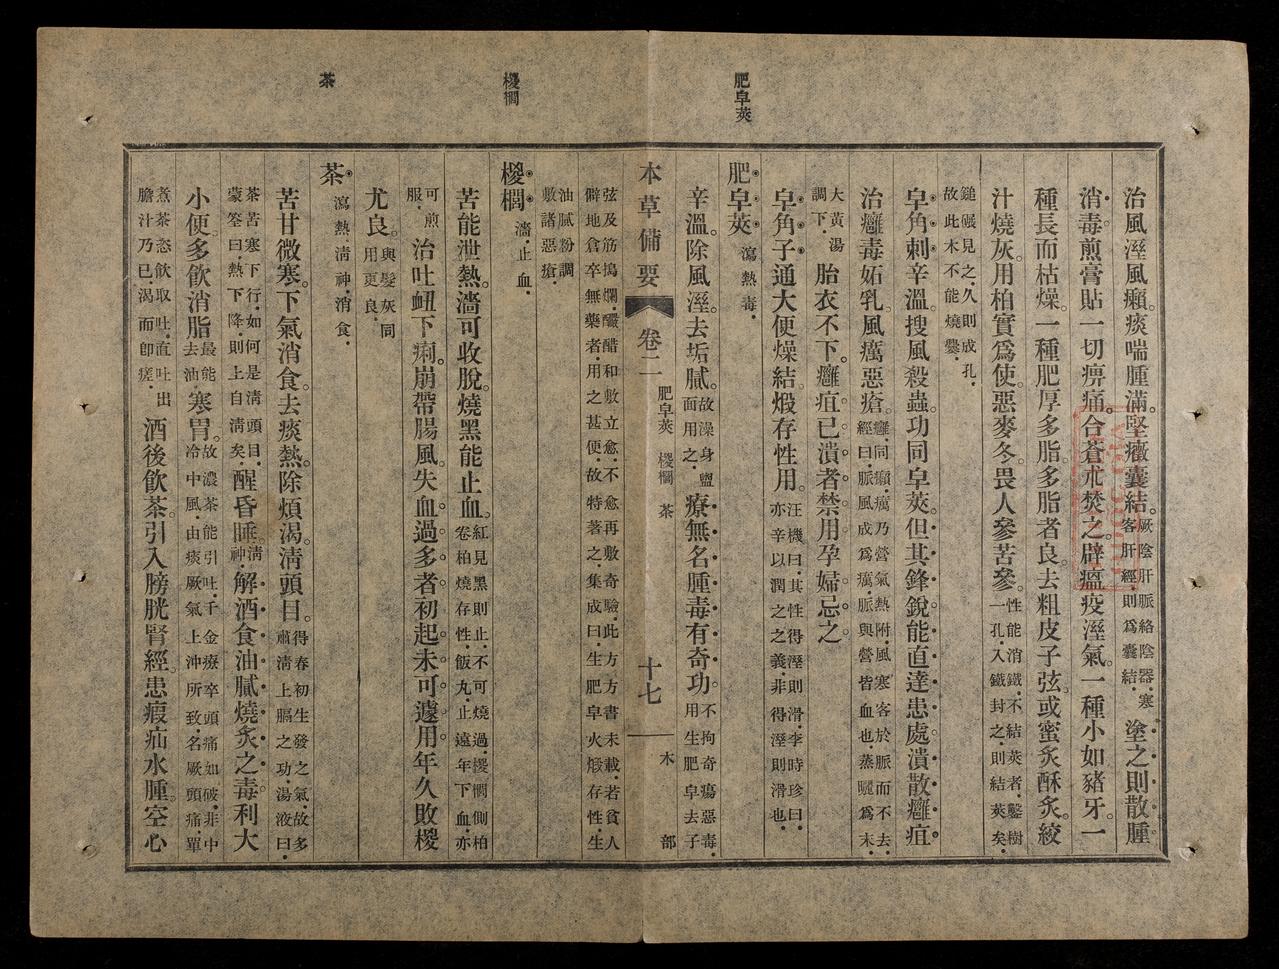 肥皁莢
椶櫚
茶
治風溼風癩。痰喘腫滿。堅癥囊結。厥陰肝脈絡陰器.寒客肝經.則爲囊結.塗之則散腫
消毒。煎膏貼一切痹痛。合蒼朮焚之。辟瘟疫溼氣。一種小如豬牙。一
種長而枯燥。一種肥厚多脂。多脂者良。去粗皮子弦。或蜜炙酥炙絞
汁燒灰。用柏實爲使。惡麥冬。畏人參苦參。性能消鐵.不結莢者.鑿樹一孔.入鐵封之.則結莢矣.
鎚碾見之.久則成孔.故此木不能燒爨.
皁角刺辛溫。搜風殺蟲。功同皁莢。但其鋒銳。能直達患處。潰散癰疽。
治癰毒妬乳。風癘惡瘡。癰.同癩.癘乃營氣熱附.風寒客於脈而不去.經曰.脈風成爲癘.脈與營皆血也.蒸曬爲末.
大黃湯調下.胎衣不下。癰疽已潰者禁用。孕婦忌之。
皁角子通大便燥結。煅存性用。汪機曰.其性得溼則滑.李時珍曰.亦辛以潤之之義.非得溼則滑也.
肥皁莢瀉熱毒.
辛溫。除風溼。去垢膩。故澡身盥面用之.療無名腫毒有奇功。不拘奇瘍惡毒.用生肥皁去子
本草備要
卷二
肥皁莢 椶櫚 茶
十七
木部
弦及筋搗爛.釅醋和敷立愈.不愈再敷奇驗.此方方書未載.若貧人僻地倉卒無藥者.用之甚便.故特著之.集成曰.生肥皁火煅存性.生
油膩粉調敷諸惡瘡.
椶櫚濇.止血.
苦能泄熱。濇可收脫。燒黑能止血。紅見黑則止.不可燒過.椶櫚側柏卷柏燒存性.飯丸.止遠年下血.亦
可煎服.治吐衄下痢。崩帶腸風。失血過多者。初起未可遽用。年久敗椶
尤良。與髮灰同用更良.
茶瀉熱淸神.消食.
苦甘微寒。下氣消食。去痰熱。除煩渴。淸頭目。得春初生發之氣.故多肅淸上膈之功.湯液曰.
茶苦寒下行.如何是淸頭目.蒙筌曰.熱下降.則上自淸矣.醒昏睡。淸神.解酒食油膩燒炙之毒。利大
小便。多飲消脂。最能去油.寒胃。故濃茶能引吐.千金療卒頭痛如破.非中冷中風.由痰厥氣上沖所致.名厥頭痛.單
煮茶恣飲取吐.直吐出膽汁乃已.渴而卽瘥.酒後飲茶。引入膀胱腎經。患瘕疝水腫。空心